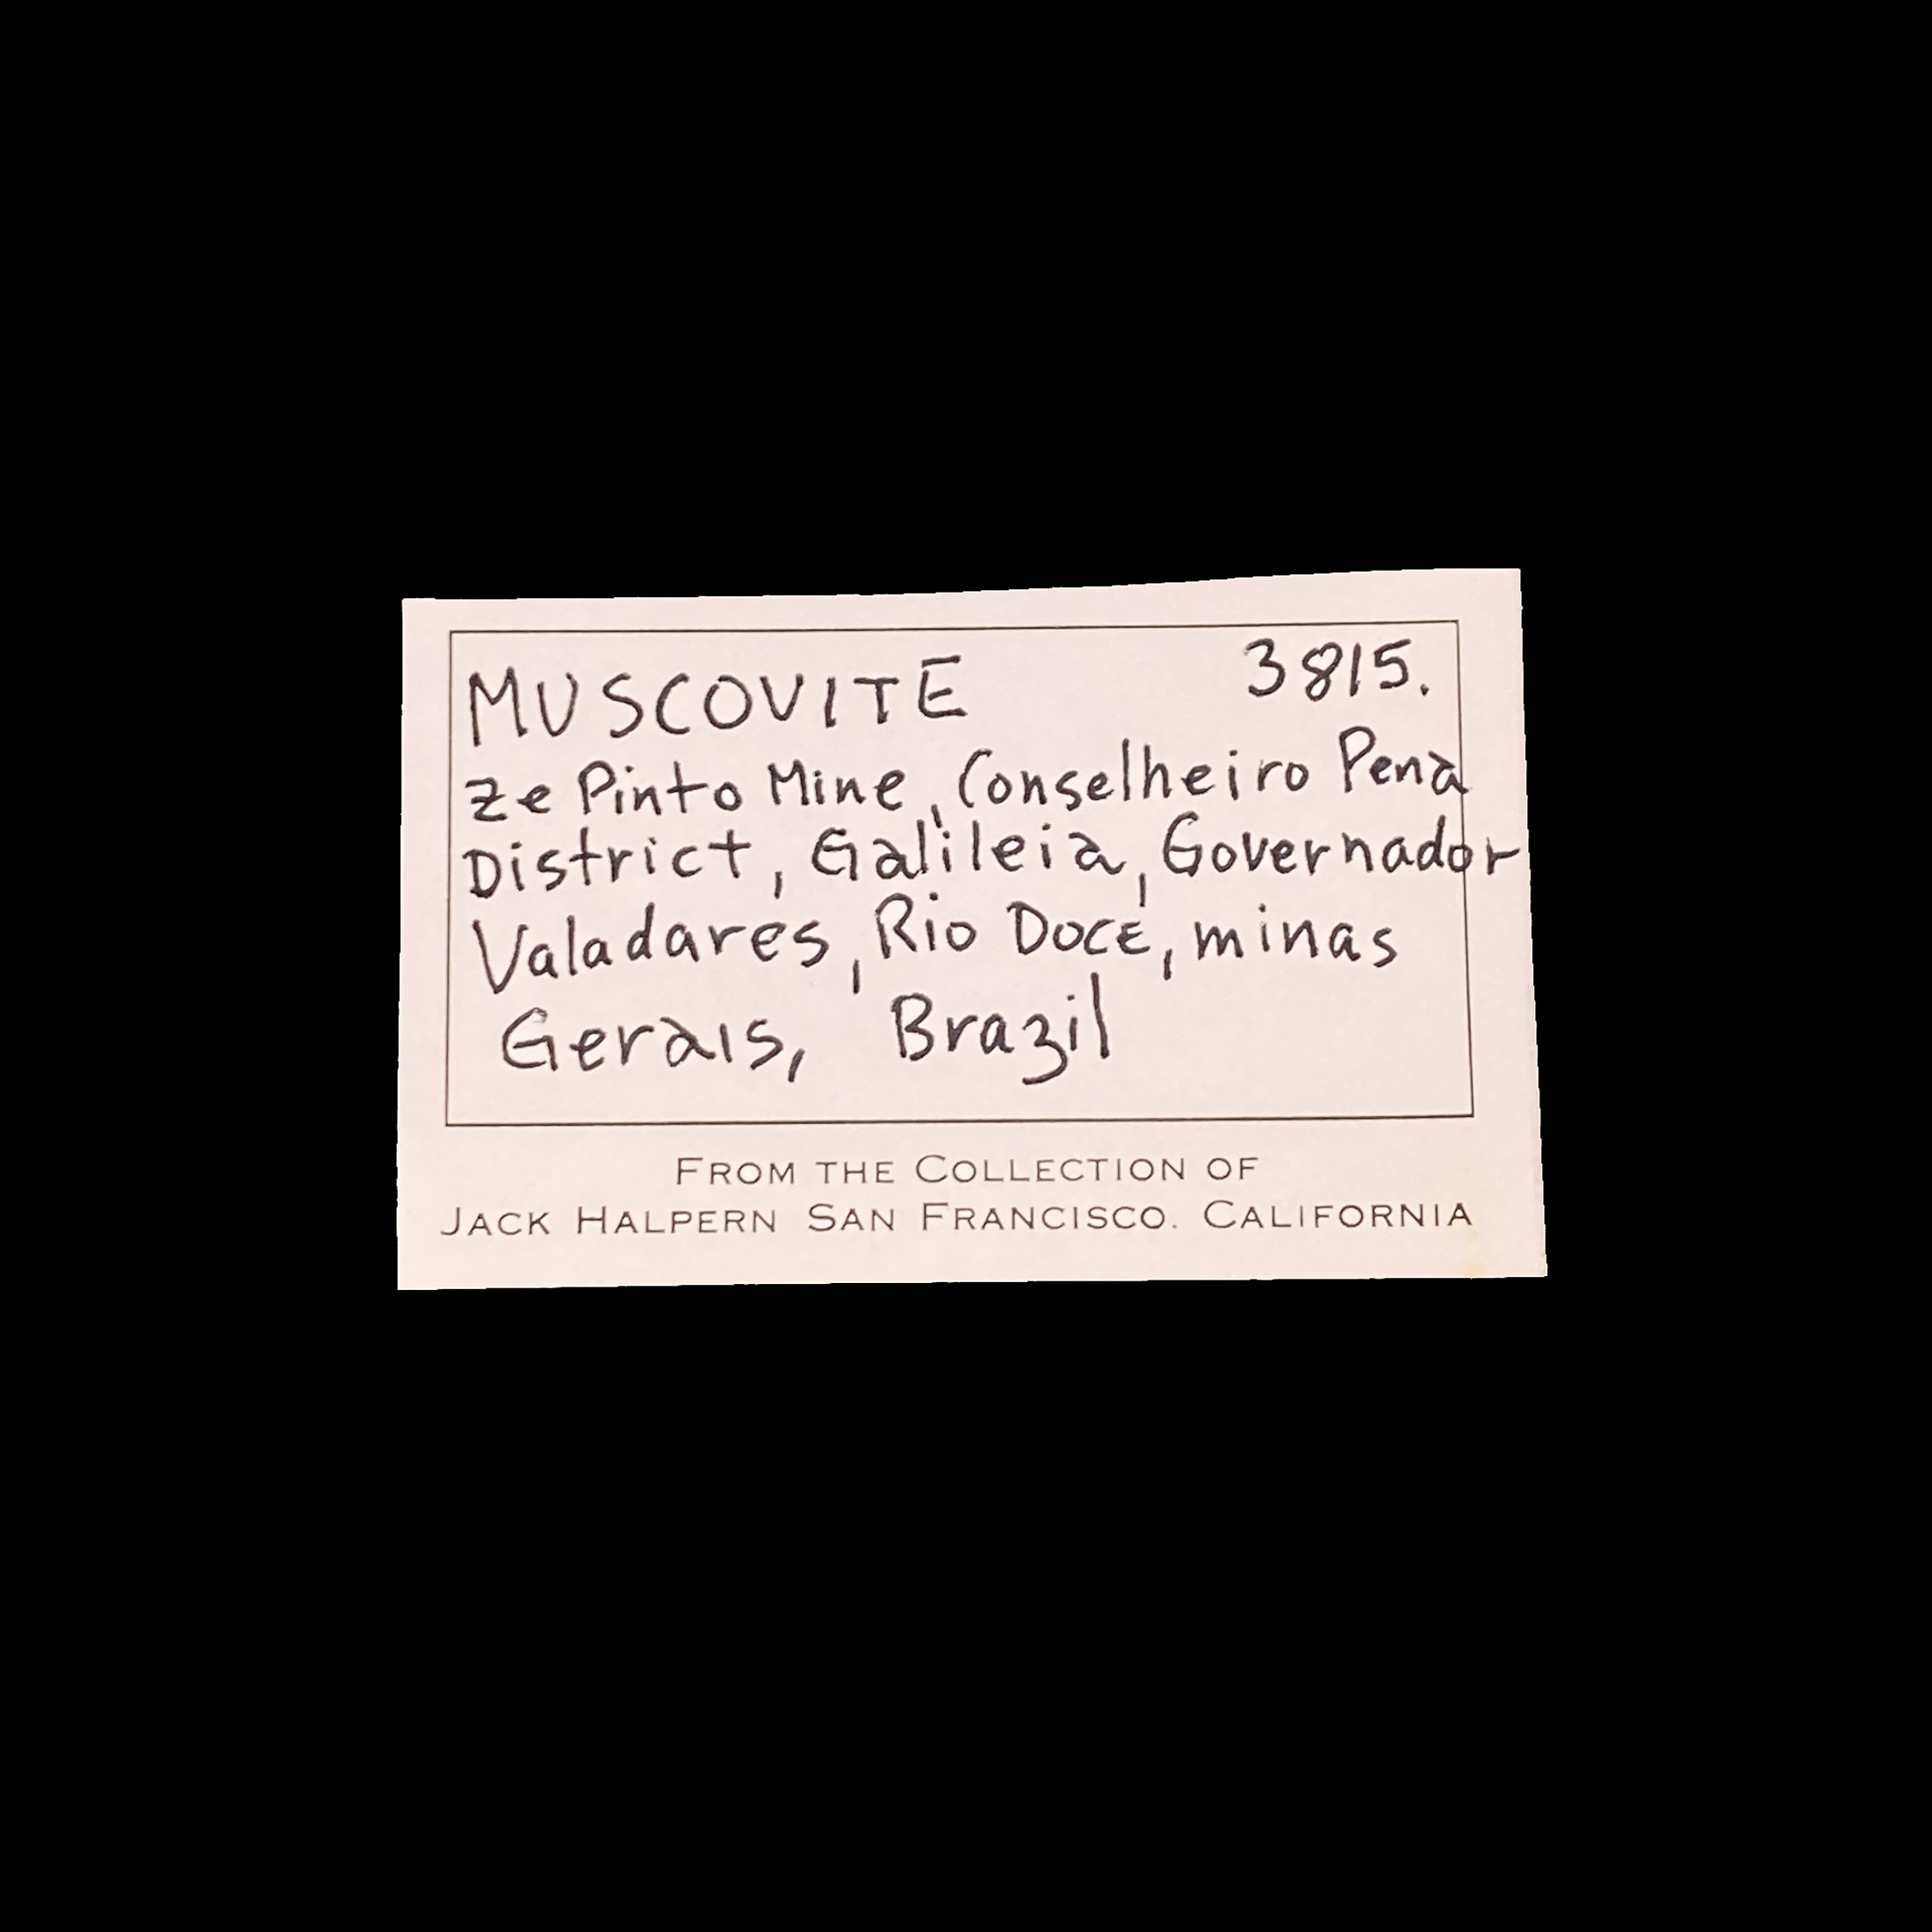 MUSCOVITE 3815.
Ze Pinto Mine, Conselheiro Pena
District, Galileia, Governador
Valadares, Rio Doce, minas
Gerais, Brazil
FROM THE COLLECTION OF
JACK HALPERN SAN FRANCISCO. CALIFORNIA